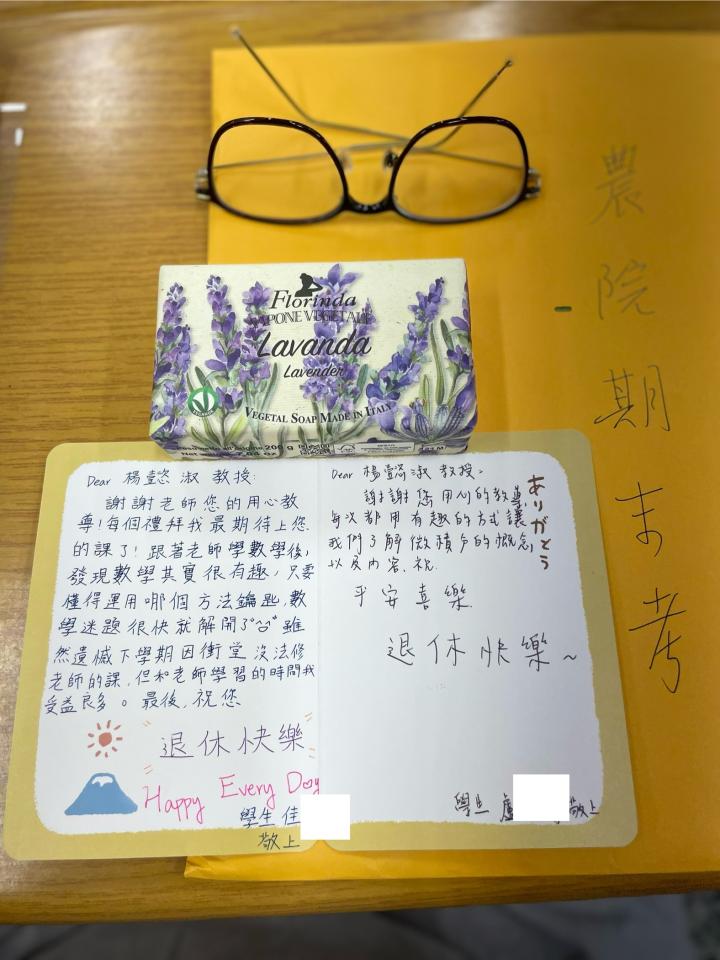 農院期末考
Florinda
SAPONE VEGETALE
Lavanda
Lavender
VEGETAL SOAP MADE IN ITALY
Dear 楊懿淑 教授:
謝謝老師您的用心教
導!每個禮拜我最期待上您
的課了!跟著老師學數學後,
發現數學其實很有趣,只要
懂得運用哪個方法鑰匙,數
學迷題很快就解開了 雖
然遺憾下學期因衝堂沒法修
老師的課,但和老師學習的時間我
受益良多。最後,祝您
退休快樂
Happy Every Day
學生 佳
敬上
Dear 楊懿淑 教授。
謝謝您用心的教導
每次都用有趣的方式讓
我們了解微積分的概念
以及內容,祝
平安喜樂
退休快樂~
ありがとう
學生 盧
敬上